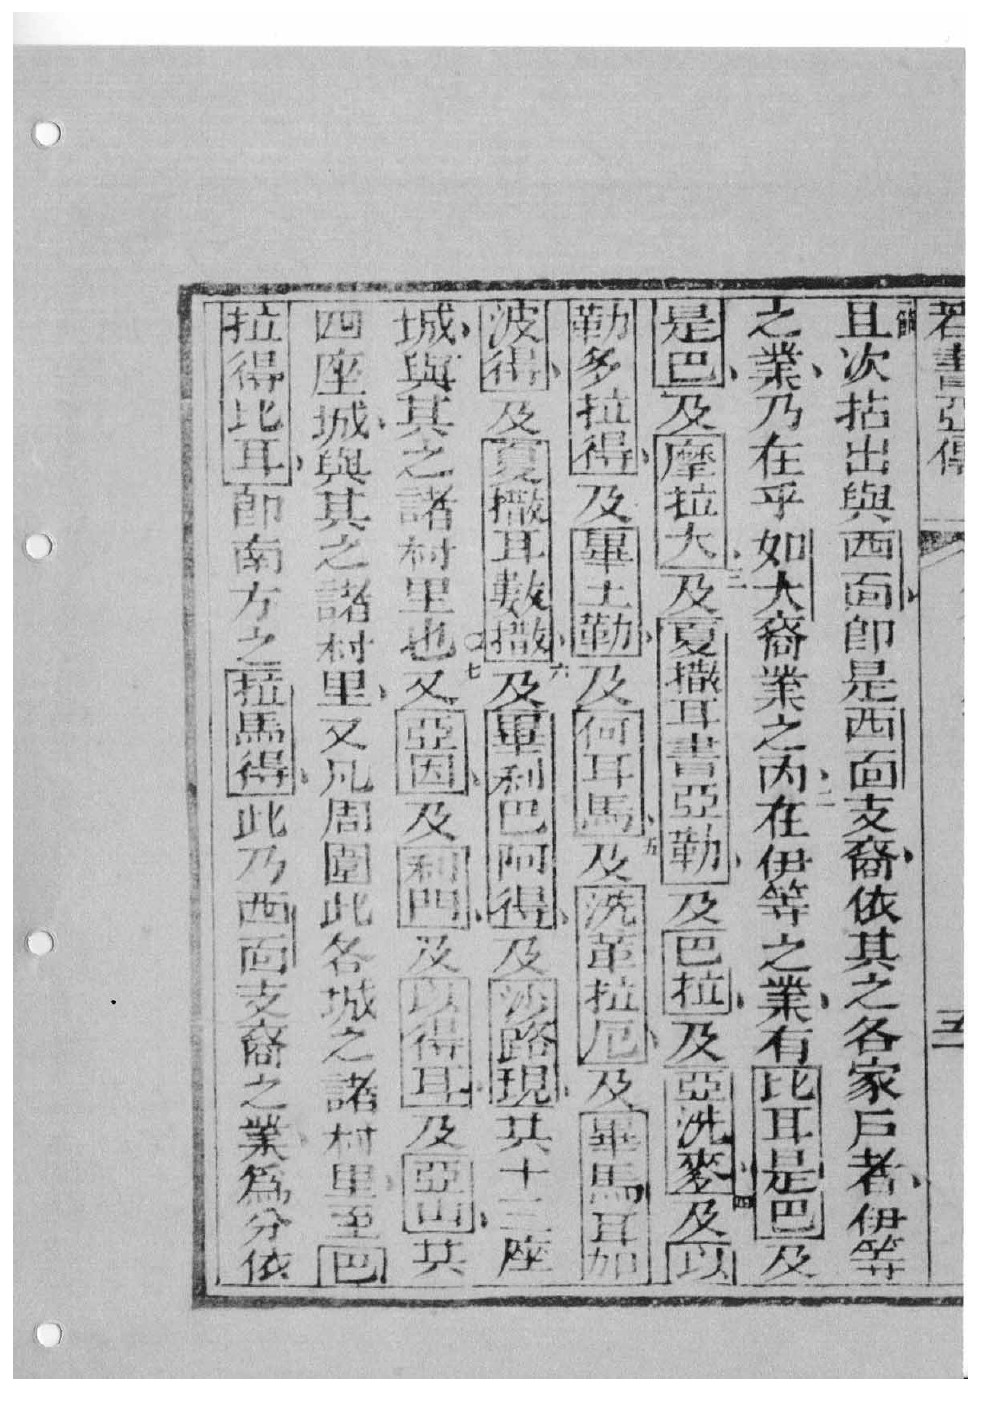 若書亞傳
五
且次拈出與西面即是西面支裔依其之各家戶者伊等
之業乃在乎如大裔業之內二在伊等之業有比耳是巴及
是巴及摩拉大三及夏撒耳書亞勒及巴拉及亞洗麥四及以
勒多拉得及畢土勒及何耳馬五及洗革拉厄及畢馬耳加
波得及夏撒耳數撒六及畢利巴阿得及沙路現共十三座
城與其之諸村里也〇七又亞因及利門及以得耳及亞山共
四座城與其之諸村里又凡周圍此各城之諸村里至巴
拉得比耳即南方之拉馬得此乃西面支裔之業為分依